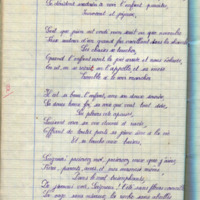 Se dissient soudain de voir l'enfant paraître,
Innocent et joyeux.
Soit que juin ait verdi mon seuil, ou que novembre
Fasse autour d'un grand feu vacillant dans la chambre
Les chaises se toucher,
Quand l'enfant vient, la joie arrive et nous éclaire,
On rit, on se récrie, on l'appelle, et sa mère
Tremble à le voir marcher.
Il est si beau, l'enfant, avec son doux sourire,
Sa douce bonne foi, sa voix qui veut tout dire,
Ses pleurs vite apaisés,
Laissant errer sa vue étonnée et ravie,
Offrant de toutes parts sa jeune âme à la vie
Et sa bouche aux baisers.
Seigneur ! préservez-moi, préservez ceux que j'aime,
Frères, parents, amis, et mes ennemis même
Dans le mal triomphants,
De jamais voir, Seigneur ! l'été sans fleurs vermeilles,
La cage sans oiseaux, la ruche sans abeilles,